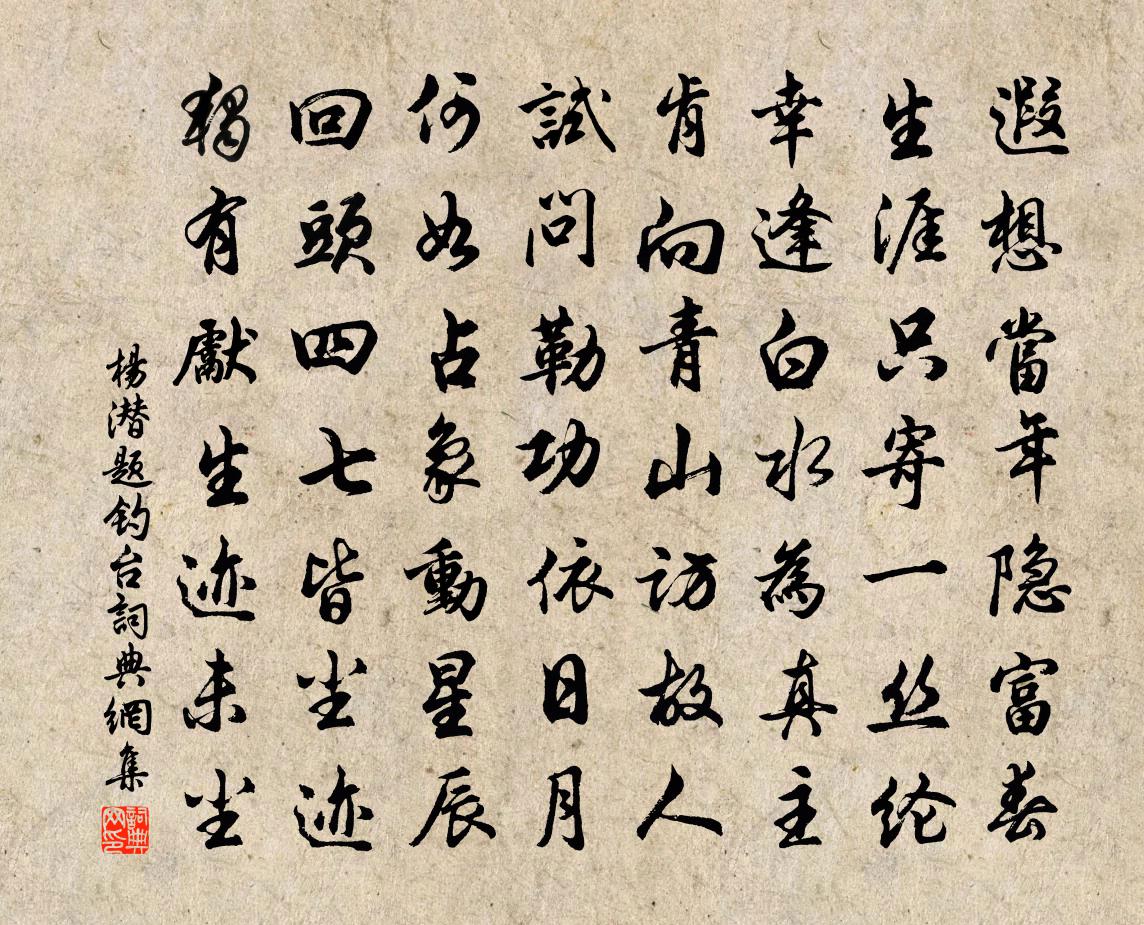 遐想當年隐富春
生涯只寄一丝纶
幸逢白水為真主
肯向青山访故人
試問勒功依日月
何如占象動星辰
回頭四七皆尘迹
獨有獻生迹未尘
楊潜题钓台詞典網集
詞典網印